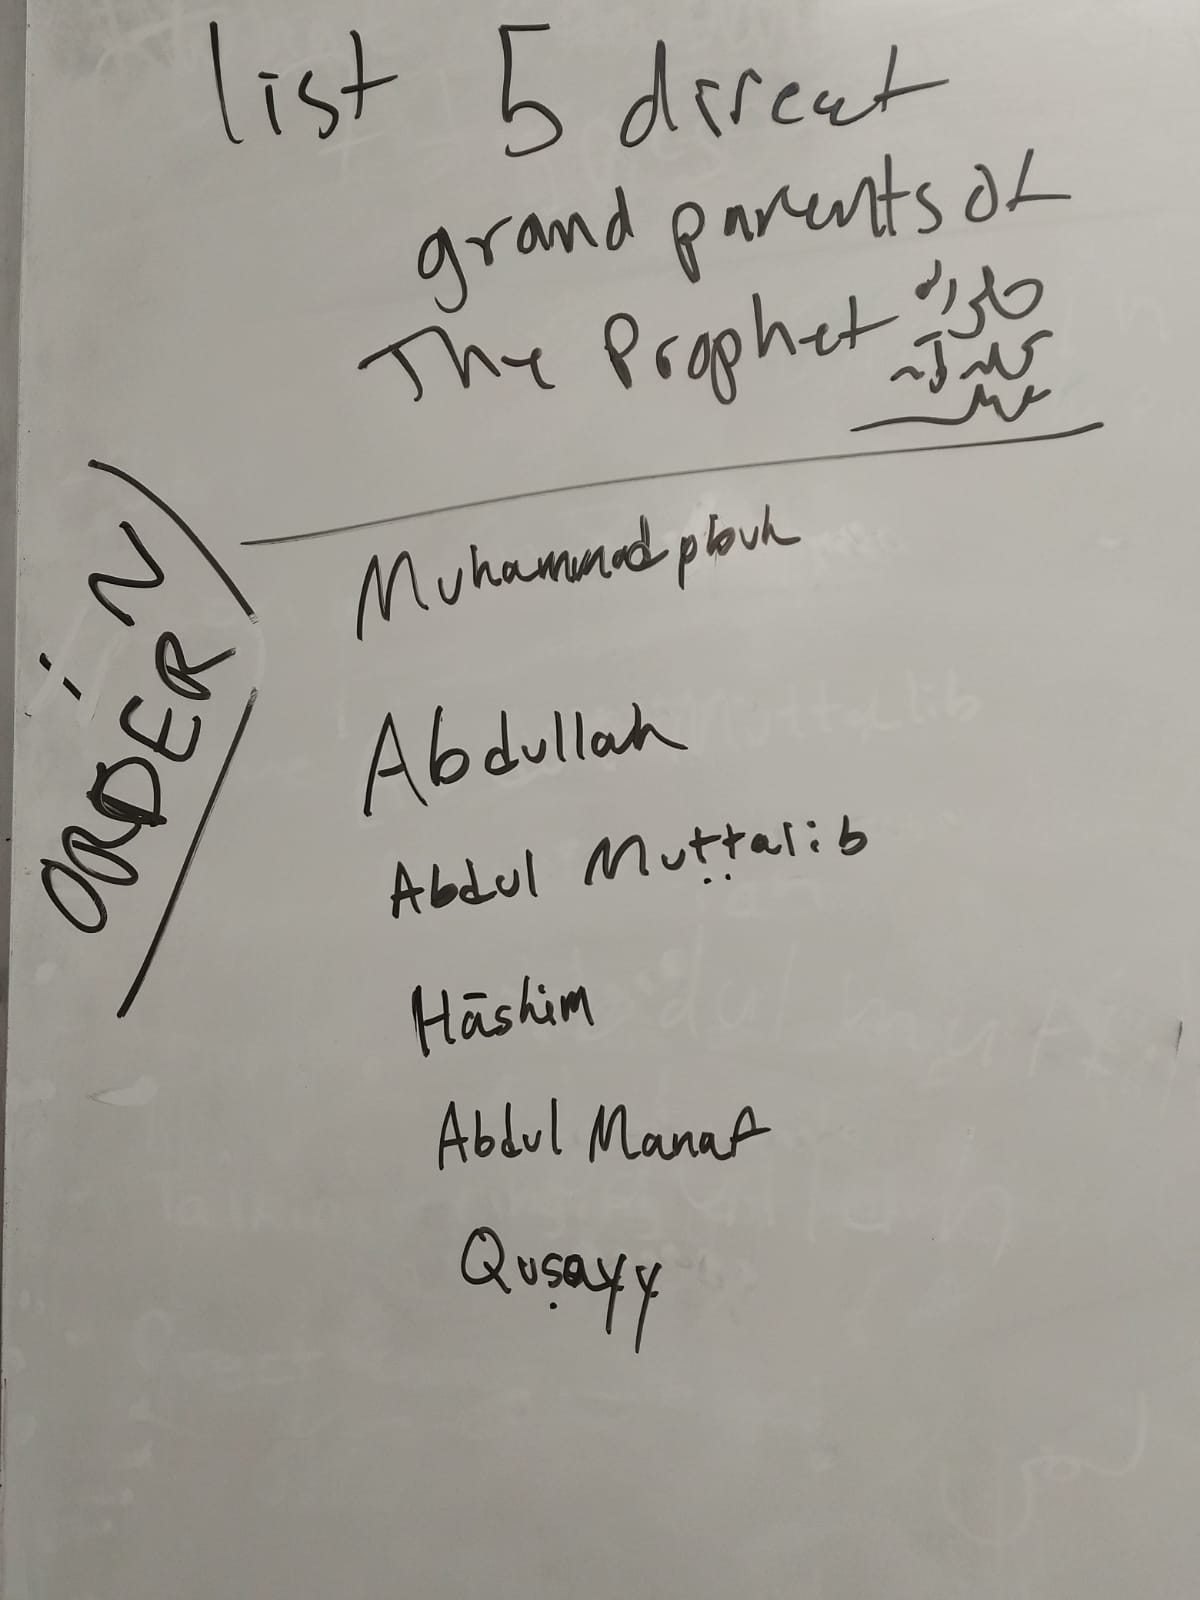 list 5 direcat
grand parents of
The Prophet صلى الله عليه وسلم
iN ORDER
Muhammad pbuh
Abdullah
Abdul Muṭṭalib
Hāshim
Abdul Manaf
Quṣayy